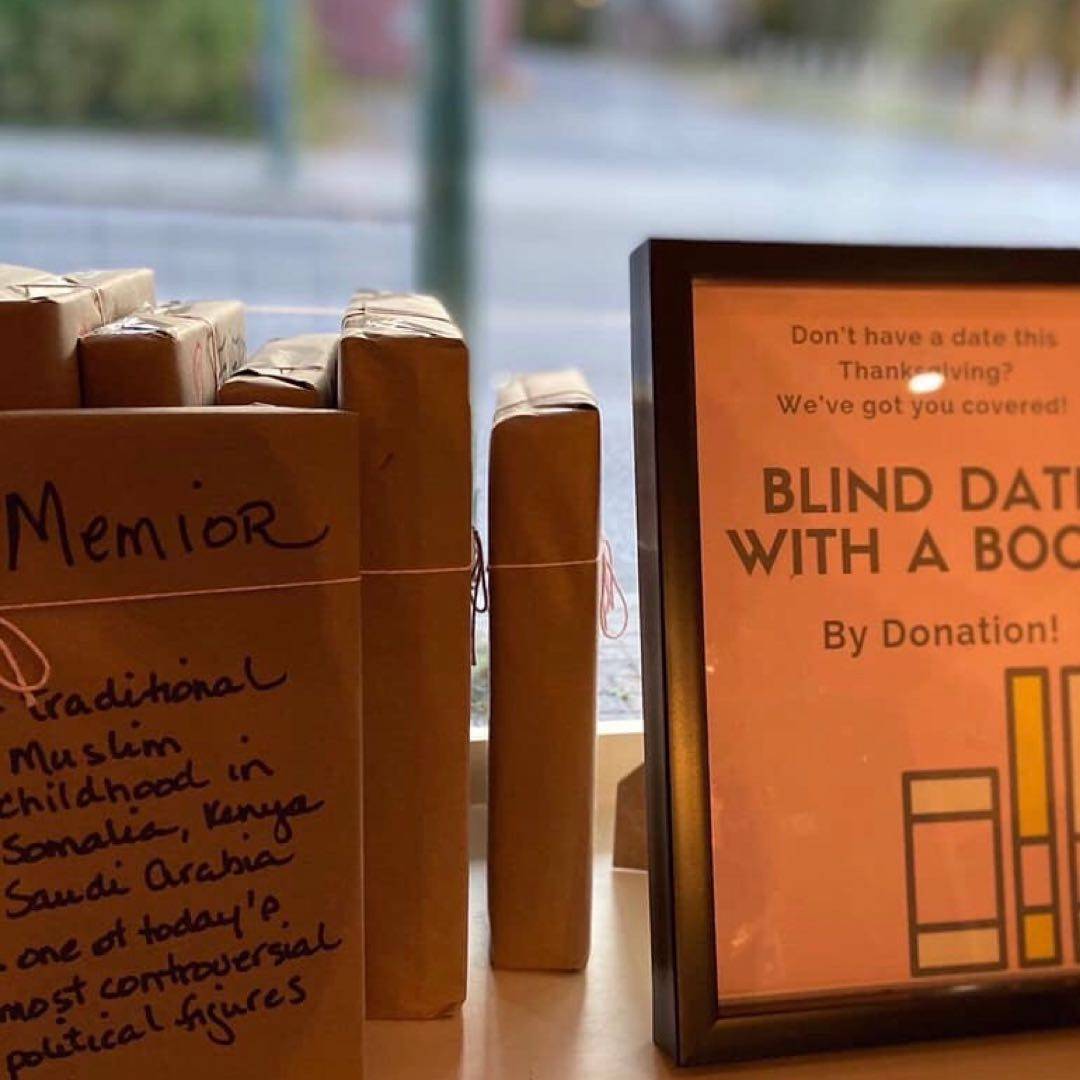 Memior
- Traditional
Muslim
childhood in
Somalia, Kenya
Saudi Arabia
- one of today's
most controversial
political figures
Don't have a date this
Thanksgiving?
We've got you covered!
BLIND DAT
WITH A BOO
By Donation!